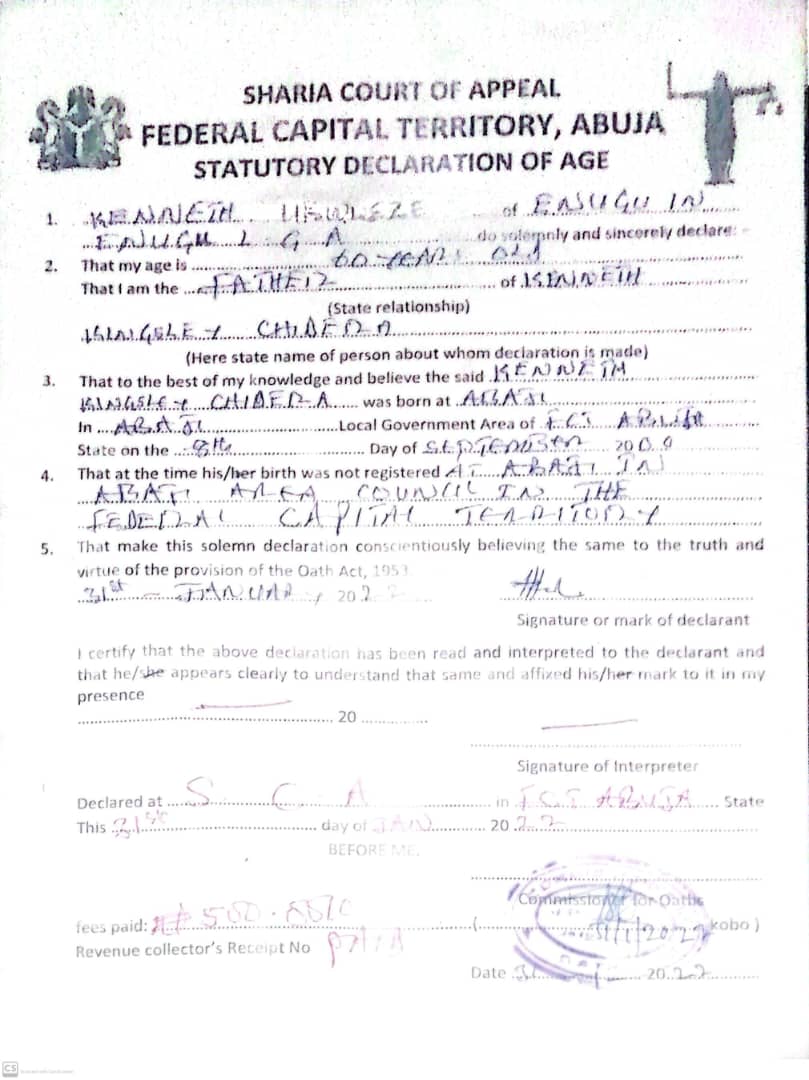 SHARIA COURT OF APPEAL
FEDERAL CAPITAL TERRITORY, ABUJA
STATUTORY DECLARATION OF AGE
1. KENNETH UKWUEZE of ENUGU IN
ENUGU L G A do solemnly and sincerely declare: -
2. That my age is 60 YEARS OLD
That I am the FATHER of KENNETH
(State relationship)
KINGSLEY CHIDERA
(Here state name of person about whom declaration is made)
3. That to the best of my knowledge and believe the said KENNETH
KINGSLEY CHIDERA was born at ABAJI
In ABAJI Local Government Area of FCT ABUJA
State on the 8th Day of SEPTEMBER 20
4. That at the time his/her birth was not registered AT ABAJI IN
ABAJI AREA COUNCIL IN THE
FEDERAL CAPITAL TERRITORY
5. That make this solemn declaration conscientiously believing the same to the truth and
virtue of the provision of the Oath Act, 1953
31st - JANUARY 2022
Signature or mark of declarant
I certify that the above declaration has been read and interpreted to the declarant and
that he/she appears clearly to understand that same and affixed his/her mark to it in my
presence
20
Signature of Interpreter
Declared at S C A in FCT ABUJA State
This 31st day of JAN 2022
BEFORE ME,
Commissioner for Oaths
fees paid: ₦500 ( 31/1/2022 kobo )
Revenue collector's Receipt No
Date 31 2022
CS